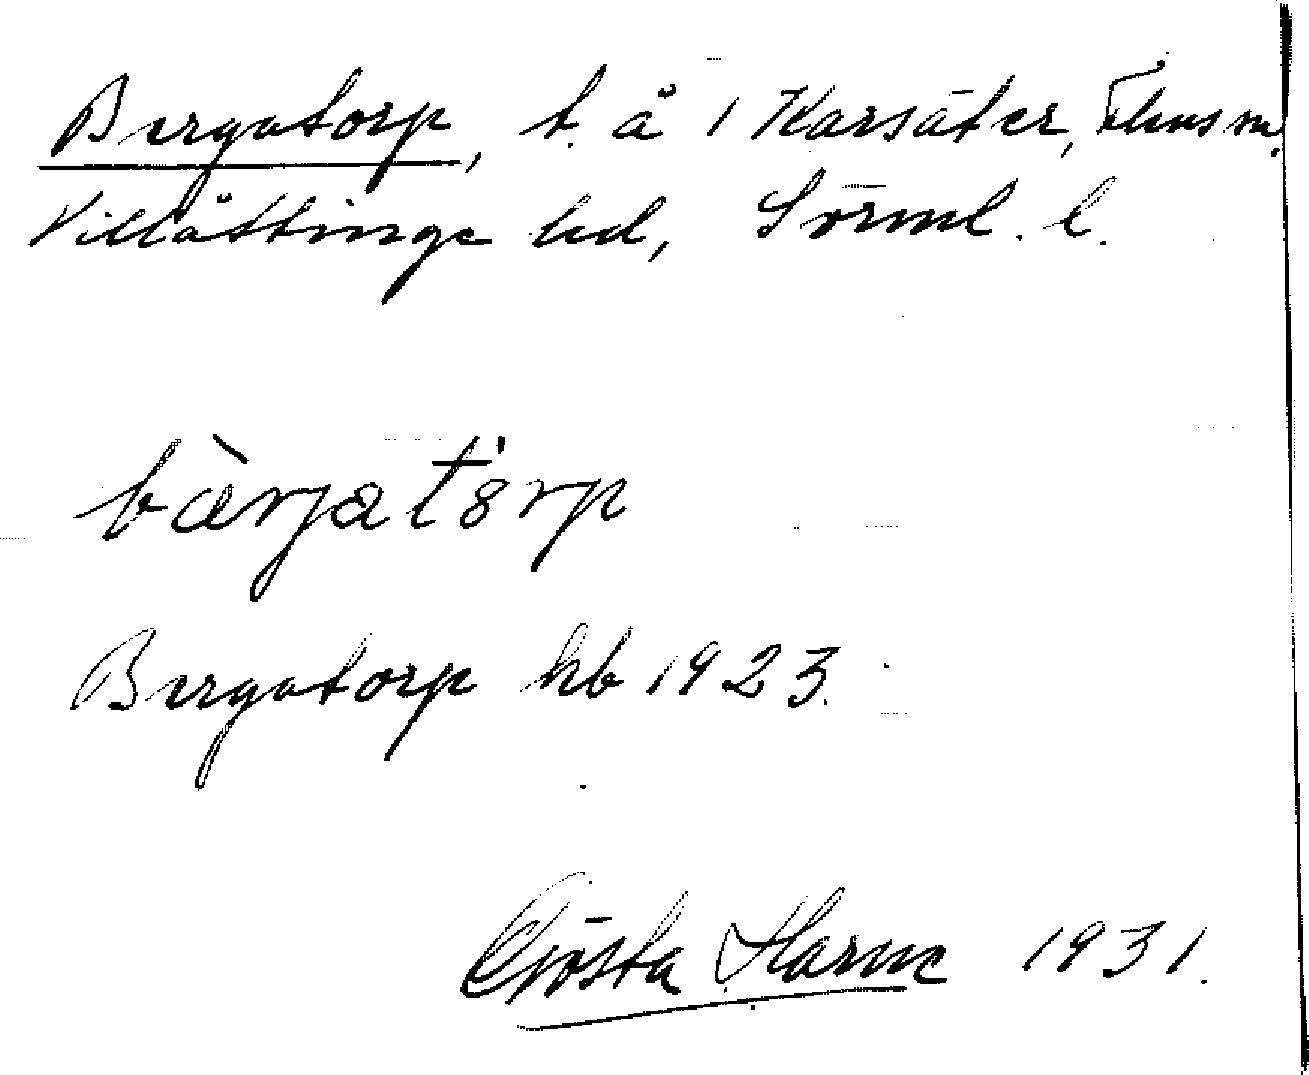 Bergatorp, t. å 1 Karsäter, Flens sn.
Villåttinge hd, Sörml. l.
bærjatȯrp
Bergatorp hb 1923.
Gösta Harne 1931.